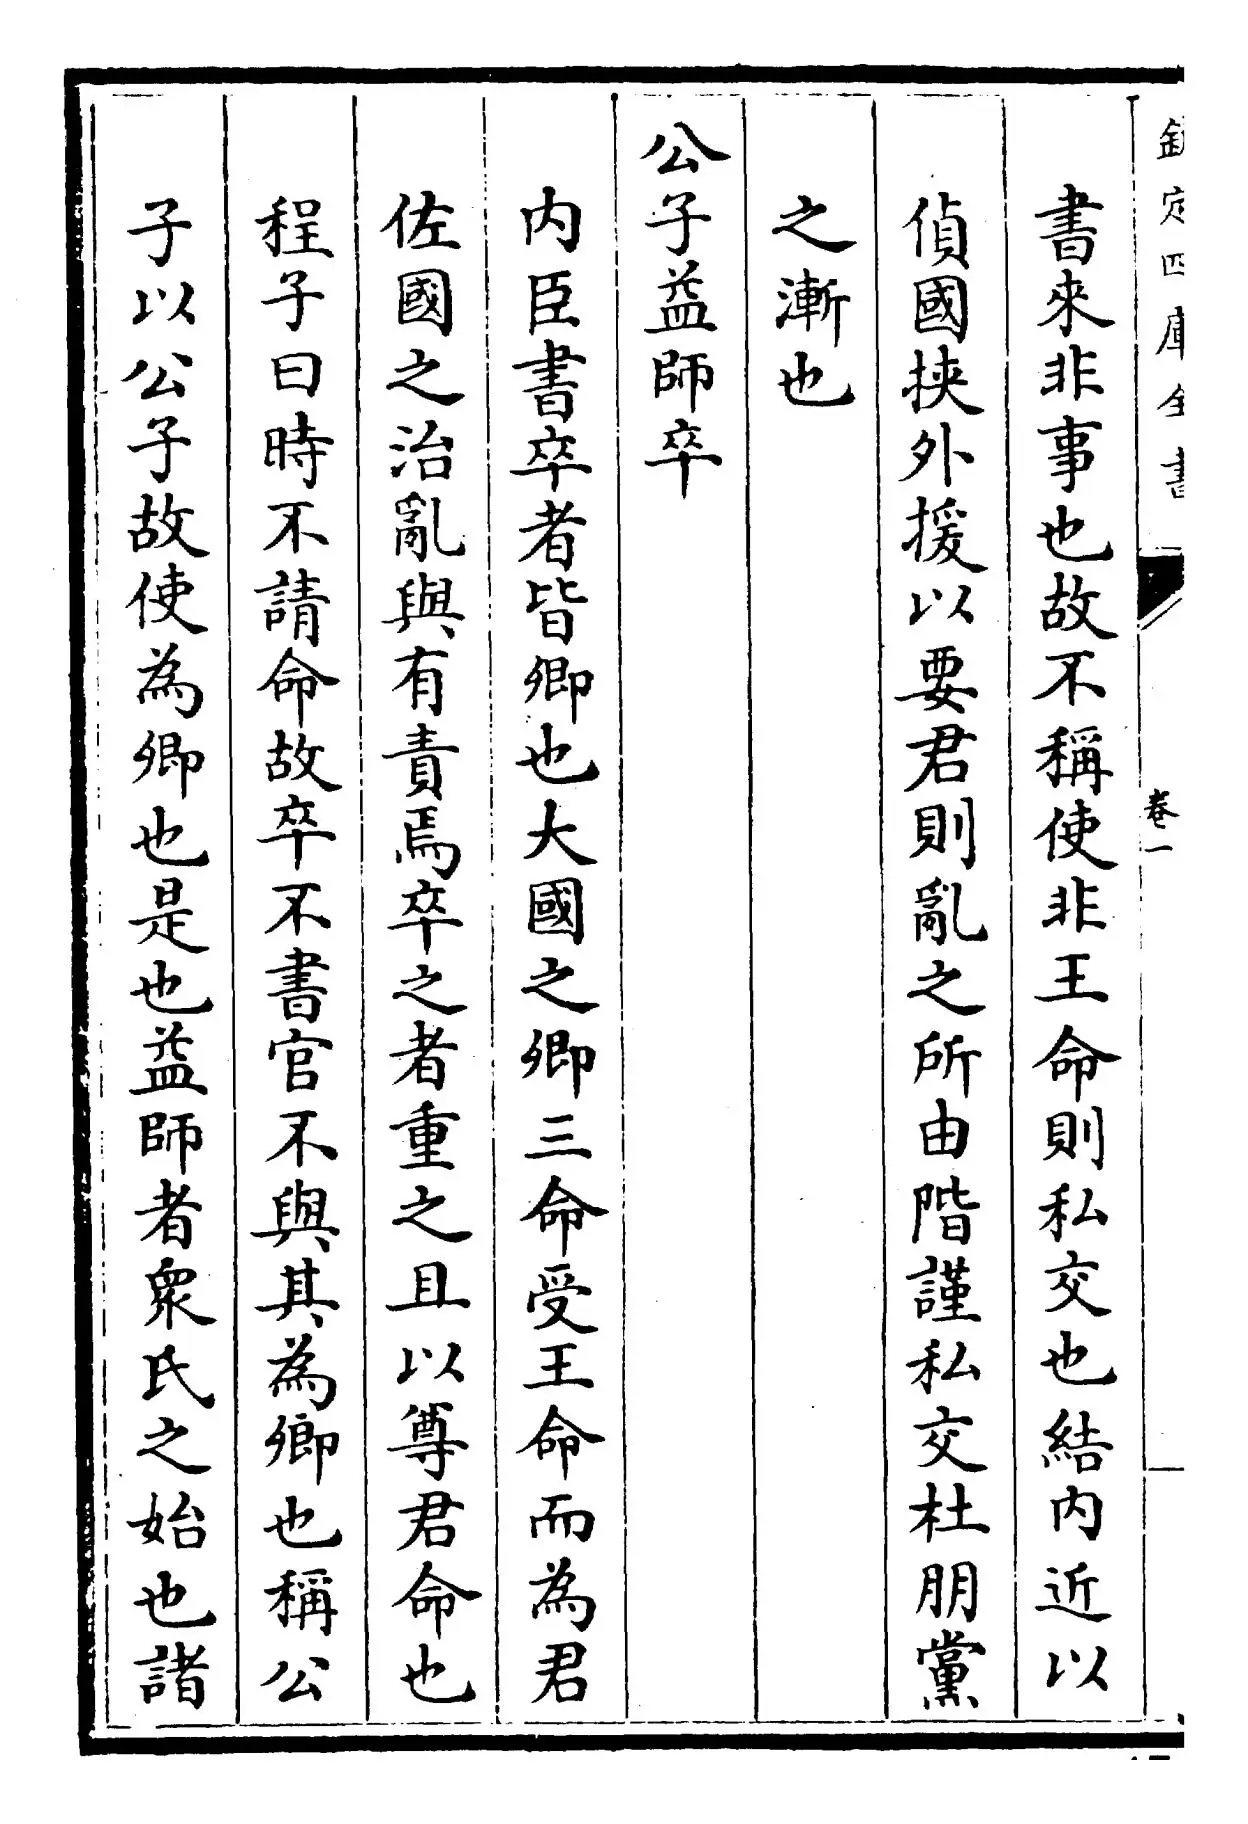 欽定四庫全書
卷一
書來非事也故不稱使非王命則私交也結内近以
偵國挾外援以要君則亂之所由階謹私交杜朋黨
之漸也
公子益師卒
内臣書卒者皆卿也大國之卿三命受王命而為君
佐國之治亂與有責焉卒之者重之且以尊君命也
程子曰時不請命故卒不書官不與其為卿也稱公
子以公子故使為卿也是也益師者衆氏之始也諸